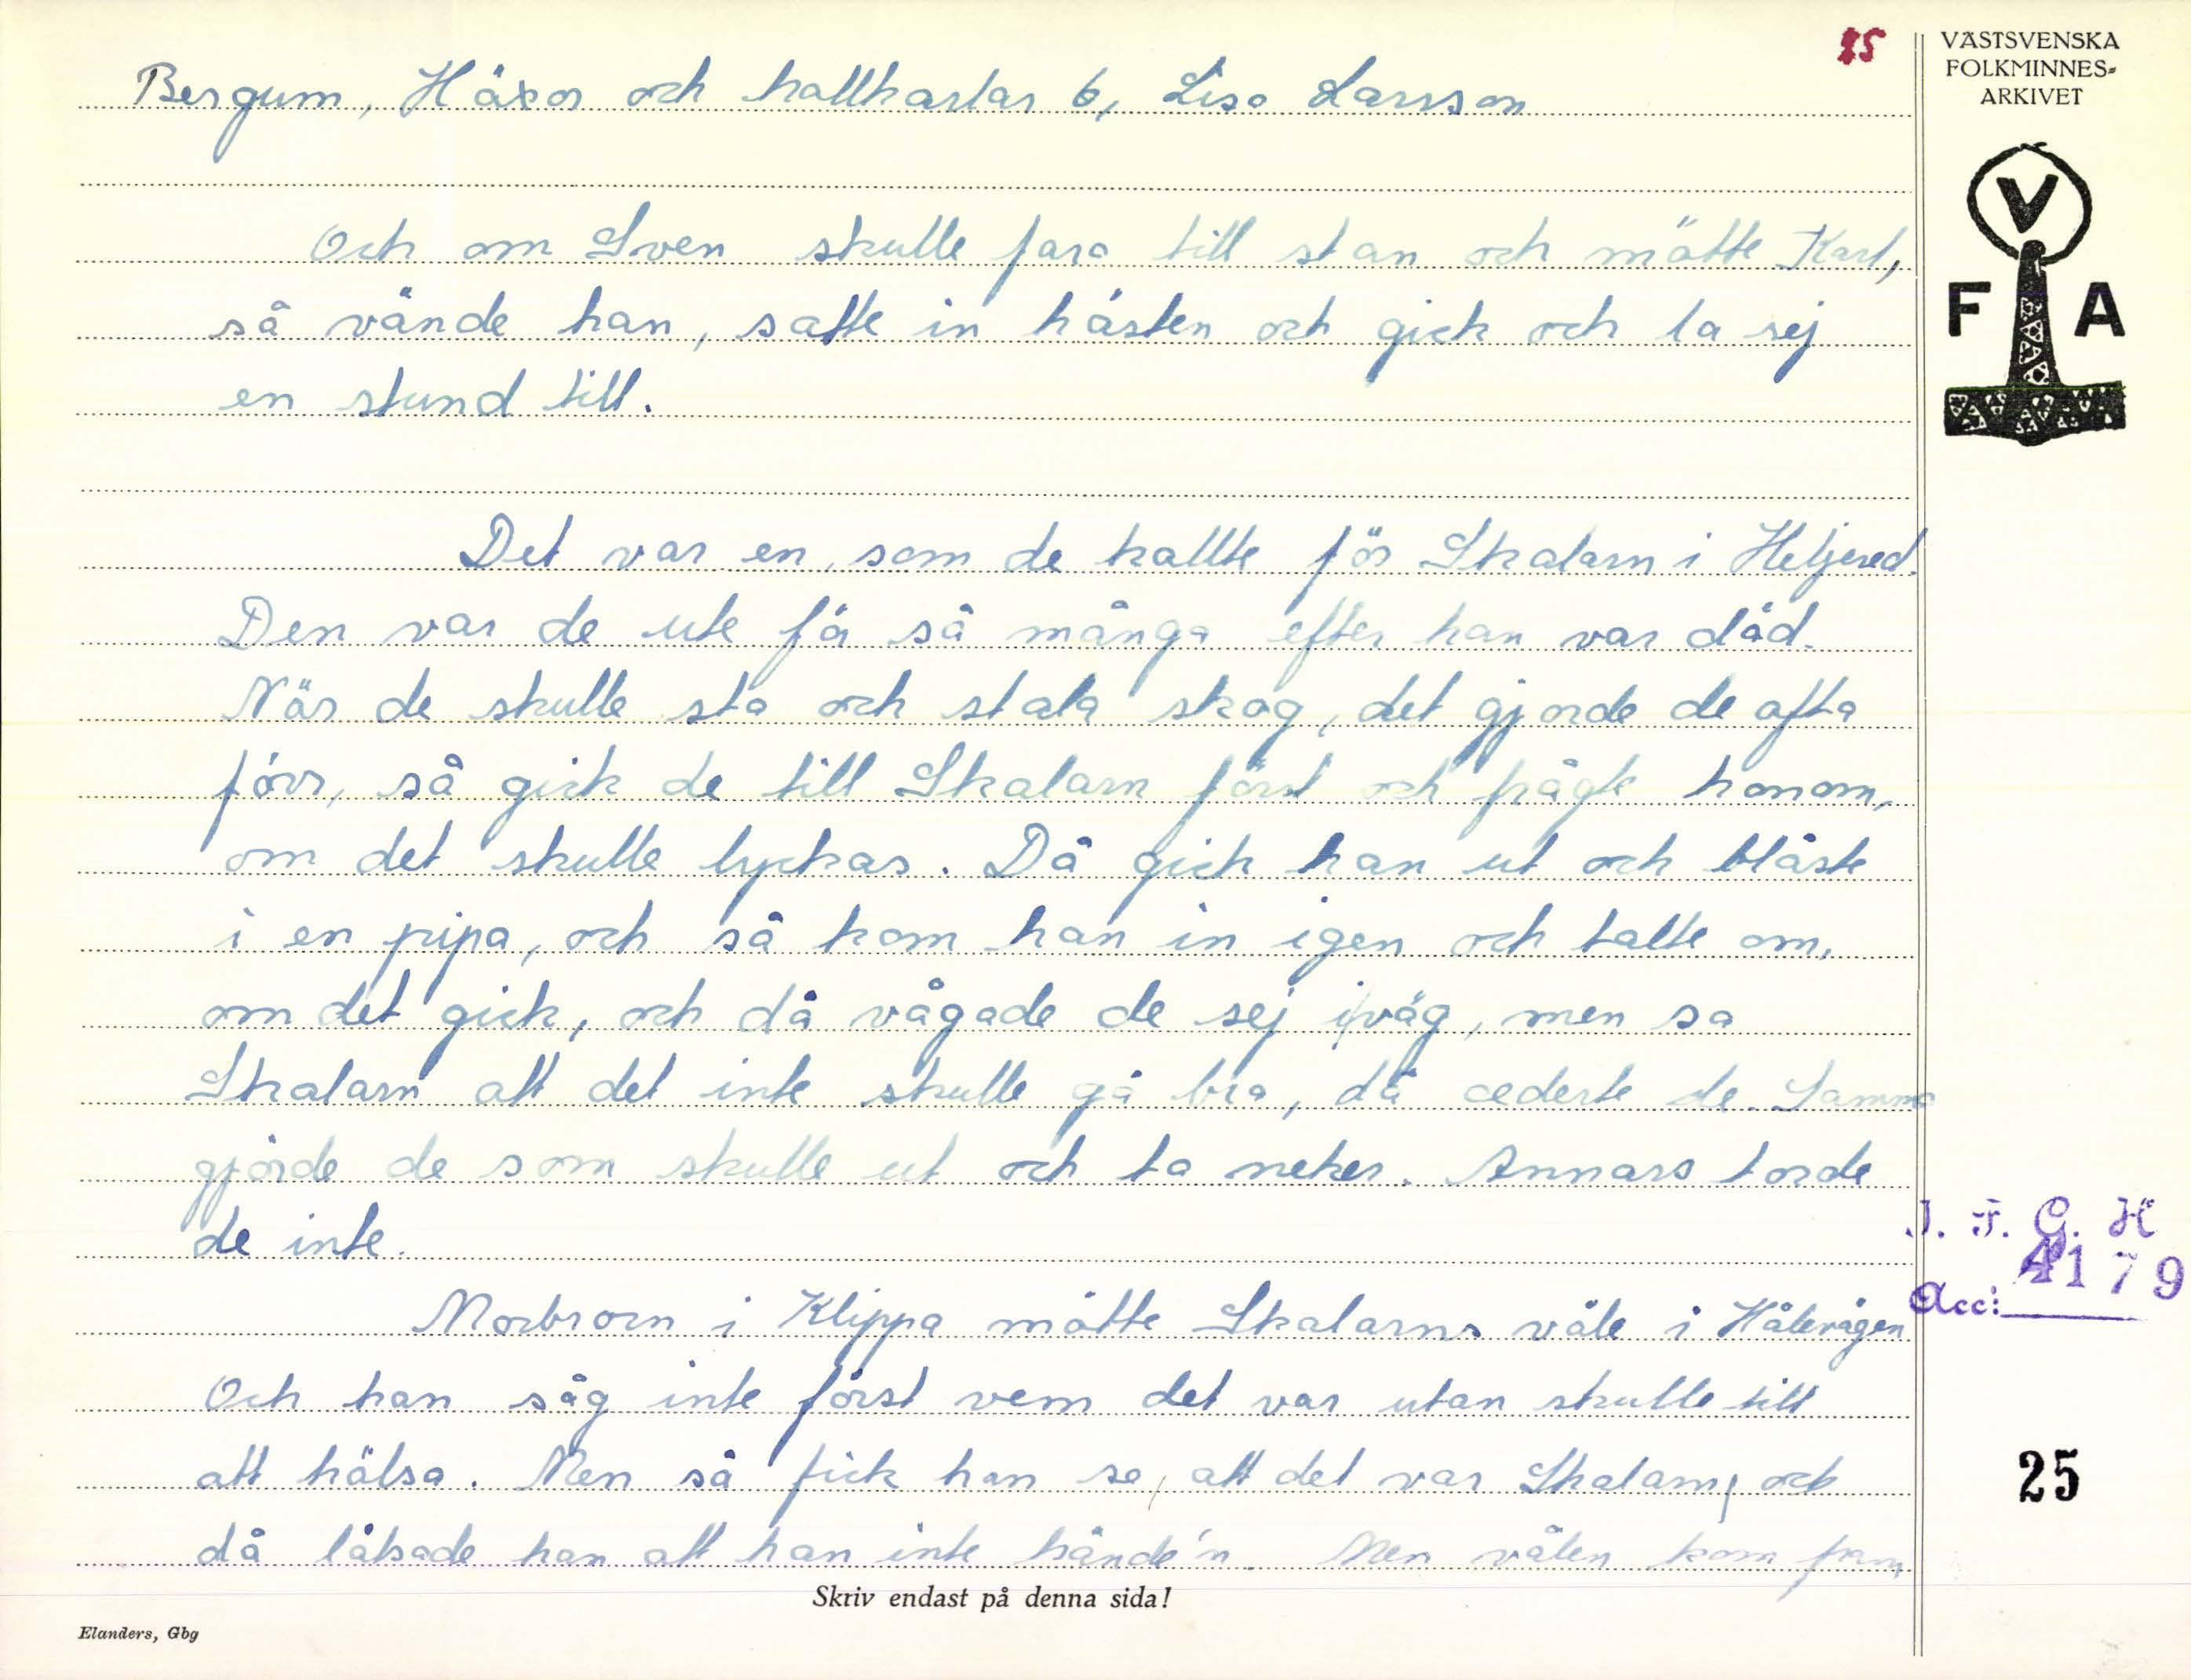 25
VÄSTSVENSKA
FOLKMINNES-
ARKIVET
V
F A
Bergum, Häxor och kallkarlar 6, Lisa Larsson
Och om Sven skulle fara till stan och mötte Karl,
så vände han, satte in hästen och gick och la sej
en stund till.
Det var en, som de kallte för Skalarn i Heljered.
Den var de ute för så många efter han var död.
När de skulle sta och stala skog, det gjorde de ofta
förr, så gick de till Skalarn först och frågte honom,
om det skulle lyckas. Då gick han ut och blåste
i en pipa, och så kom han in igen och talte om,
om det gick, och då vågade de sej iväg, men sa
Skalarn att det inte skulle gå bra, då cederte de. Samma
gjorde de som skulle ut och ta neker. Annars torde
de inte.
Morbrorn i Klippa mötte Skalarns våle i Hålevägen
Och han såg inte först vem det var utan skulle till
att hälsa. Men så fick han se, att det var Skalarn, och
då låtsade han att han inte kände'n. Men vålen kom fram,
I. F. G. H
Acc: 4179
25
Skriv endast på denna sida!
Elanders, Gbg